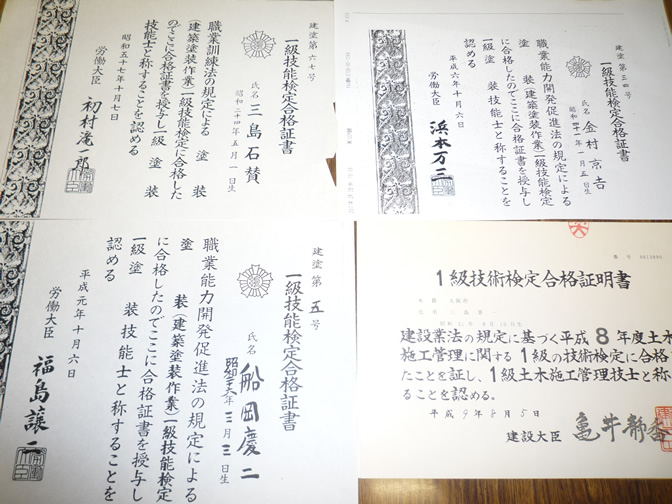 建塗第六七号
一級技能検定合格証書
氏名 三島石賛
昭和二十四年五月一日生
職業訓練法の規定による 塗 装
(建築塗装作業)一級技能検定に合格した
のでここに合格証書を授与し一級 塗 装
技能士と称することを認める
昭和五十七年十月七日
労働大臣
建塗第三四号
一級技能検定合格証書
氏名 金村京吉
職業能力開発促進法の規定による
塗 装(建築塗装作業)一級技能検定
に合格したのでここに合格証書を授与し
一級 塗 装技能士と称することを
認める
平成六年十月六日
労働大臣 浜本万三
建塗 第五号
一級技能検定合格証書
氏名 船岡慶二
三月三日生
職業能力開発促進法の規定による
塗 装(建築塗装作業)一級技能検定
に合格したのでここに合格証書を授与し
一級 塗 装技能士と称することを
認める
平成元年十月六日
労働大臣 福島譲二
1級技術検定合格証明書
建設業法の規定に基づく平成8年度土木
施工管理に関する1級の技術検定に合格
たことを証し、1級土木施工管理技士と称
ることを認める。
平成9年8月5日
建設大臣 亀井静香